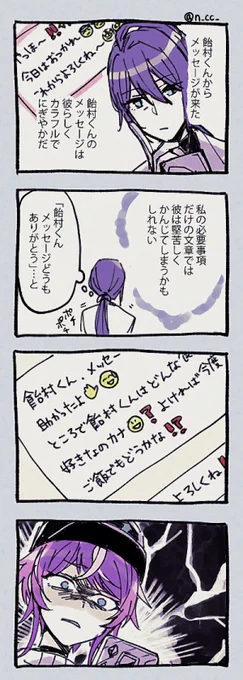 @n.cc_
っほー
今日はおつかれ
これからよろしくね
飴村くんから
メッセージが来た
飴村くんの
メッセージは
彼らしく
カラフルで
にぎやかだ
私の必要事項
だけの文章では
彼は堅苦しく
かんじてしまうかも
しれない
「飴村くん
メッセージどうも
ありがとう」…と
ポチ
ポチ
飴村くん・メッセー
助かったよ
ところで飴村くんはどんな食
好きなのカナ❓よければ今度
ご飯でもどうかな⁉
よろしくね!